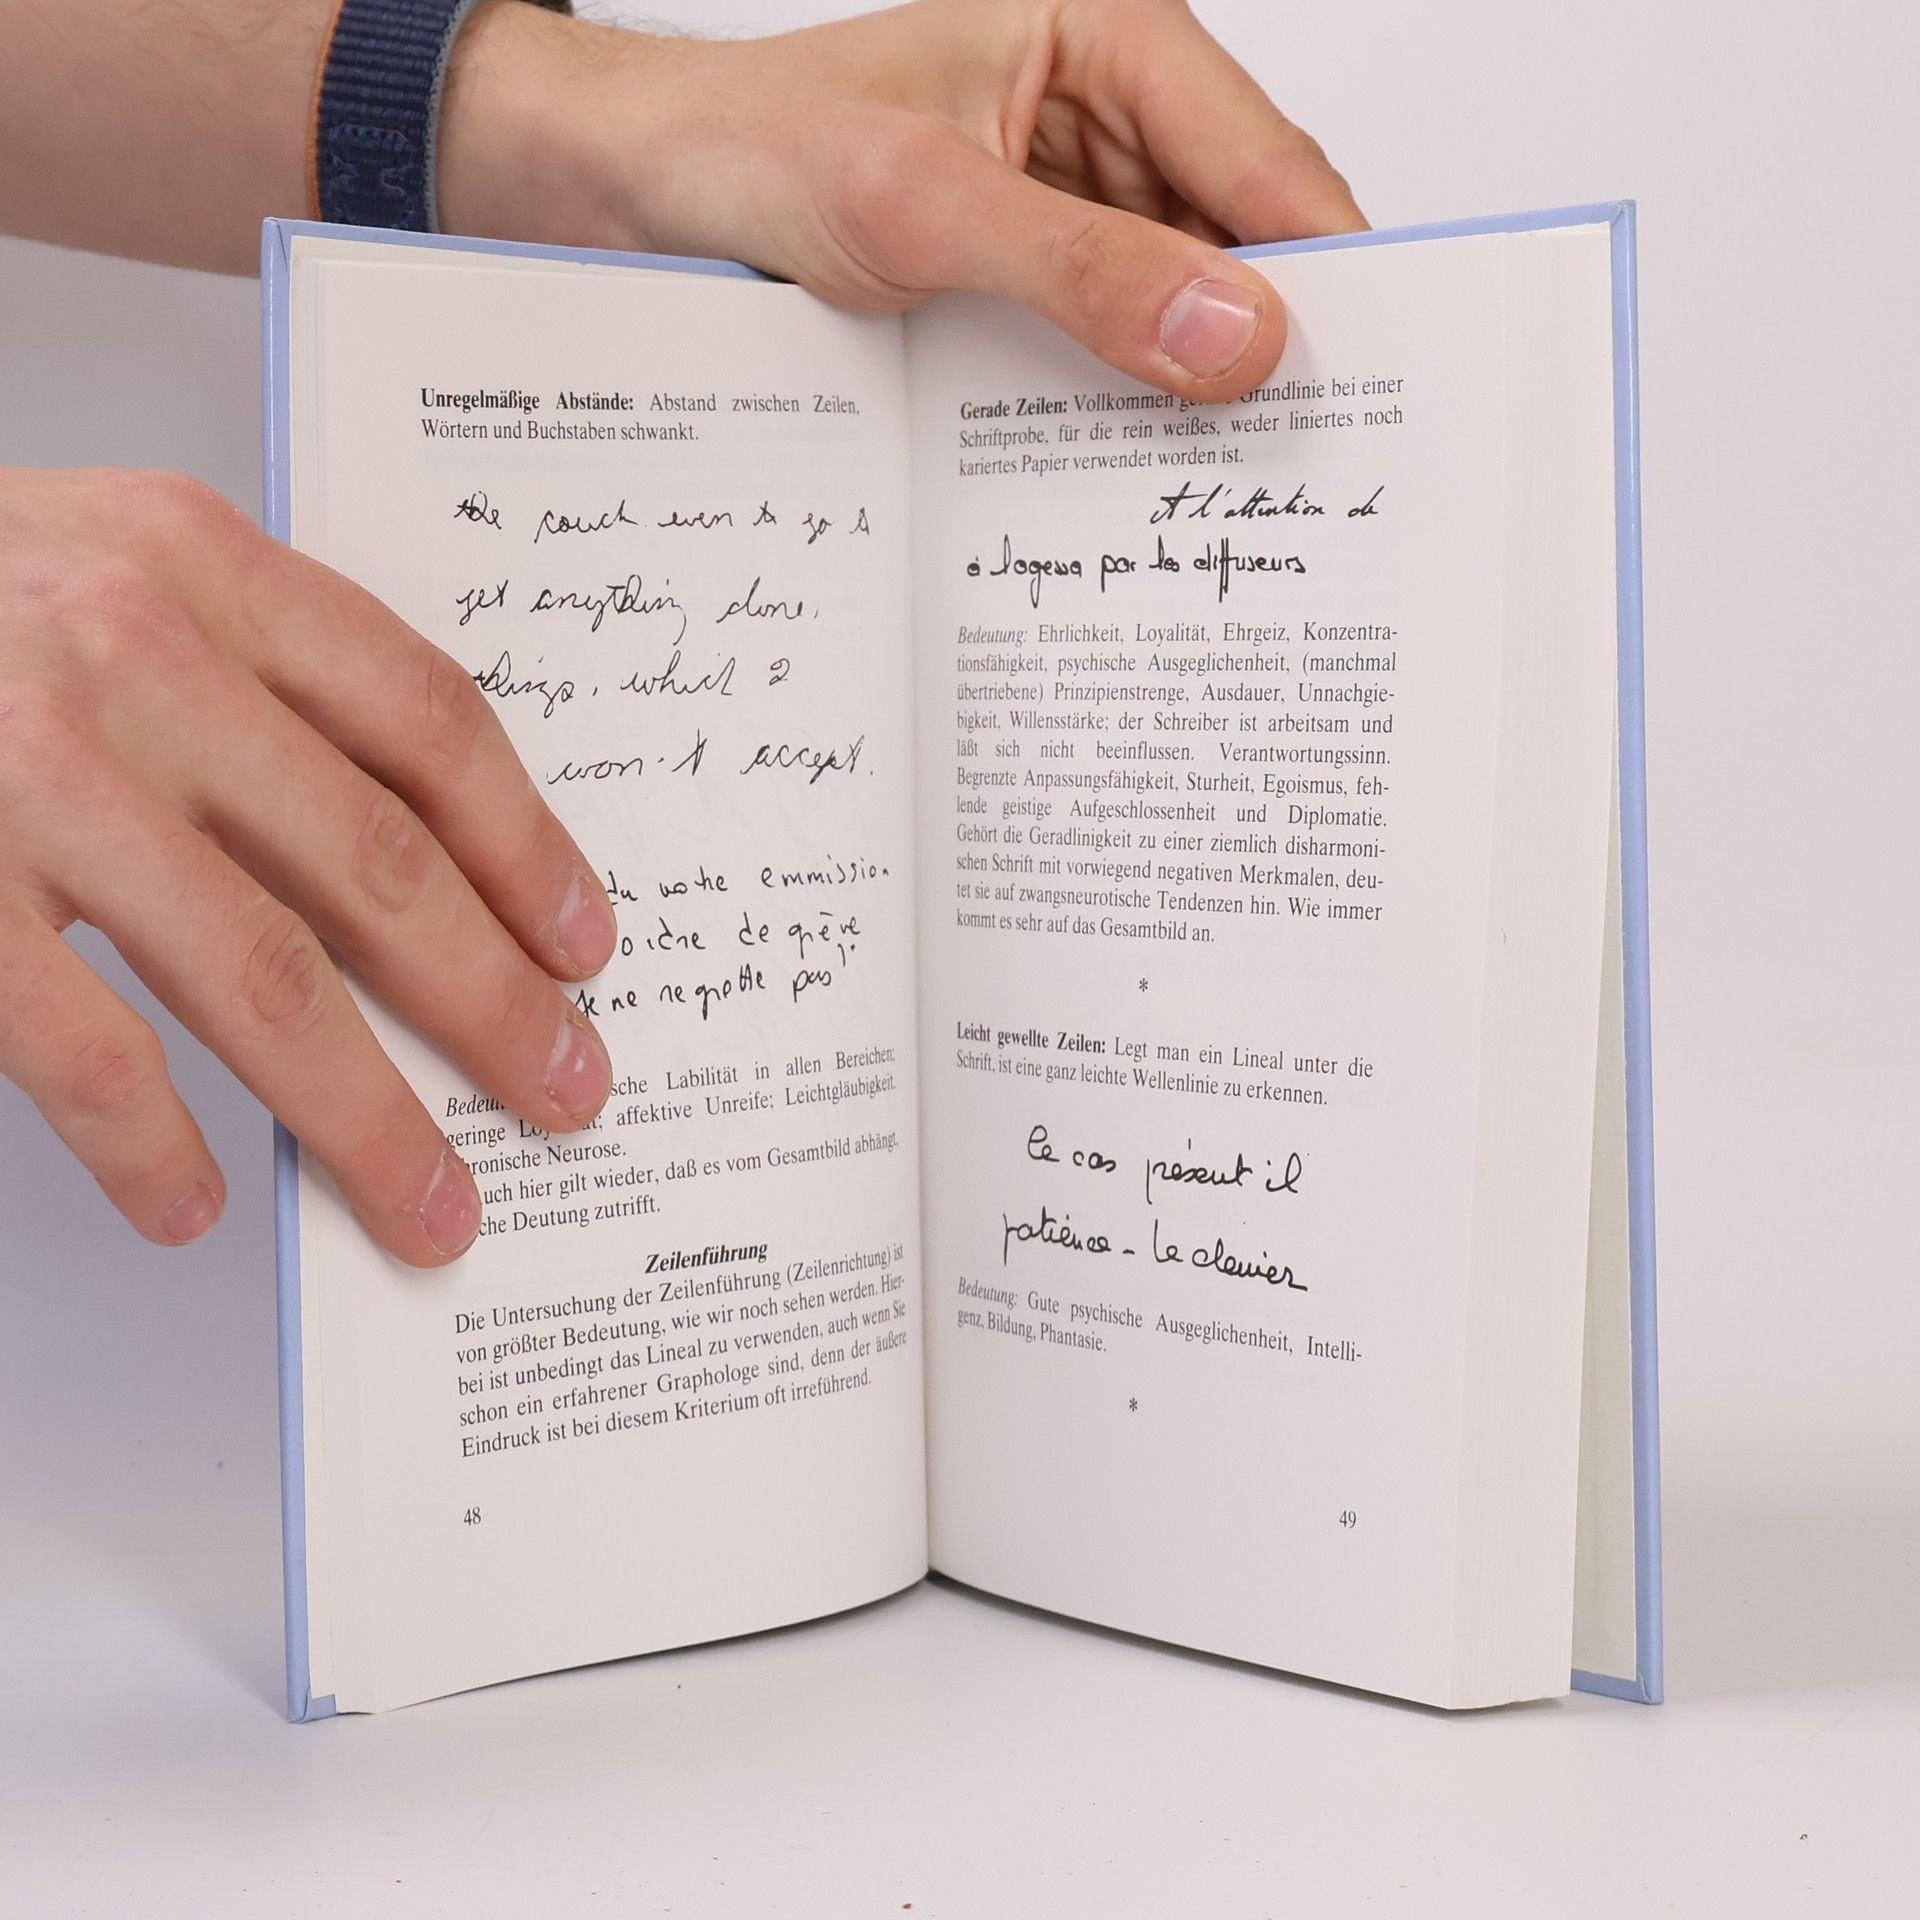 Unregelmäßige Abstände: Abstand zwischen Zeilen,
Wörtern und Buchstaben schwankt.
the couch even to go to
get anything done,
things, which I
won't accept.
du votre emmission
ordre de grève
Je ne regrette pas
sche Labilität in allen Bereichen;
geringe affektive Unreife; Leichtgläubigkeit,
chronische Neurose.
uch hier gilt wieder, daß es vom Gesamtbild abhängt,
che Deutung zutrifft.
Zeilenführung
Die Untersuchung der Zeilenführung (Zeilenrichtung) ist
von größter Bedeutung, wie wir noch sehen werden. Hier-
bei ist unbedingt das Lineal zu verwenden, auch wenn Sie
schon ein erfahrener Graphologe sind, denn der äußere
Eindruck ist bei diesem Kriterium oft irreführend.
48
Gerade Zeilen: Vollkommen Grundlinie bei einer
Schriftprobe, für die rein weißes, weder liniertes noch
kariertes Papier verwendet worden ist.
A l'attention de
à logessa par les diffuseurs
Bedeutung: Ehrlichkeit, Loyalität, Ehrgeiz, Konzentra-
tionsfähigkeit, psychische Ausgeglichenheit, (manchmal
übertriebene) Prinzipienstrenge, Ausdauer, Unnachgie-
bigkeit, Willensstärke; der Schreiber ist arbeitsam und
läßt sich nicht beeinflussen. Verantwortungssinn.
Begrenzte Anpassungsfähigkeit, Sturheit, Egoismus, feh-
lende geistige Aufgeschlossenheit und Diplomatie.
Gehört die Geradlinigkeit zu einer ziemlich disharmoni-
schen Schrift mit vorwiegend negativen Merkmalen, deu-
tet sie auf zwangsneurotische Tendenzen hin. Wie immer
kommt es sehr auf das Gesamtbild an.
*
Leicht gewellte Zeilen: Legt man ein Lineal unter die
Schrift, ist eine ganz leichte Wellenlinie zu erkennen.
le cas présent il
patience - le clavier
Bedeutung: Gute psychische Ausgeglichenheit, Intelli-
genz, Bildung, Phantasie.
*
49